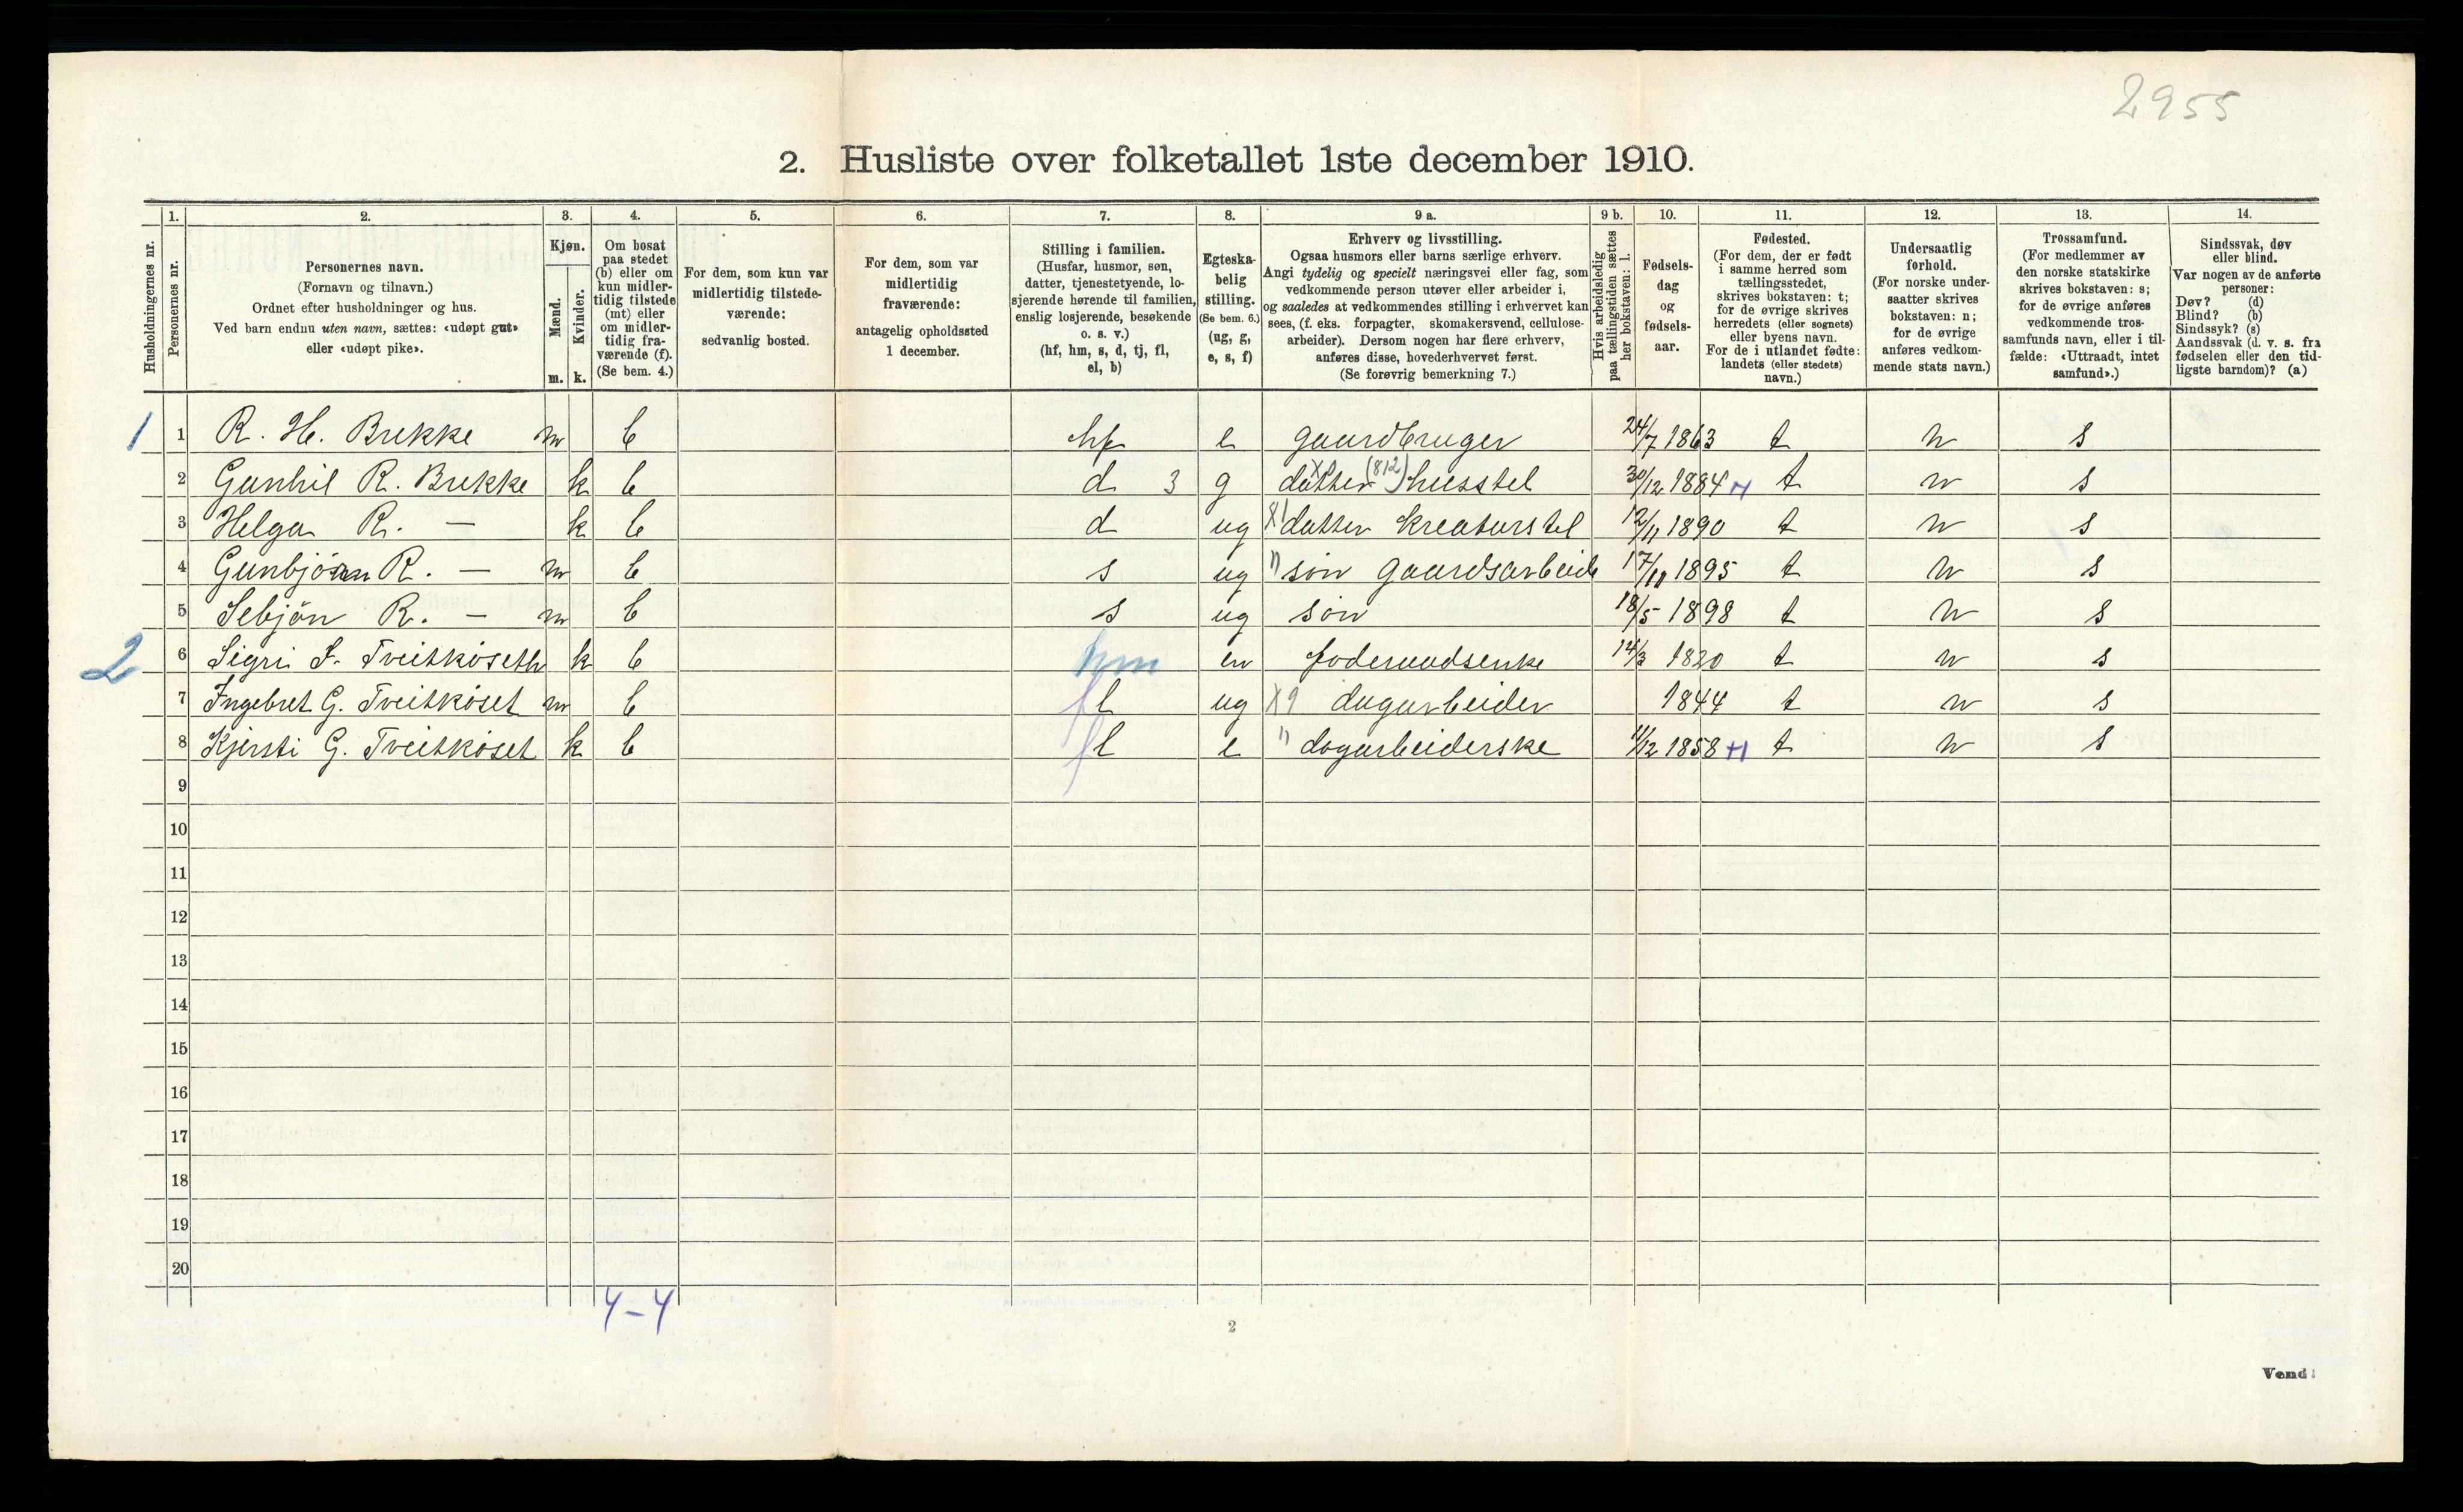 2955
2. Husliste over folketallet 1ste december 1910.
1. 2. 3. 4. 5. 6. 7. 8. 9 a. 9 b. 10. 11. 12. 13. 14.
Husholdningernes nr.
Personernes nr.
Personernes navn.
(Fornavn og tilnavn.)
Ordnet efter husholdninger og hus.
Ved barn endnu uten navn, sættes: «udøpt gut»
eller «udøpt pike».
Kjøn.
Mænd.
Kvinder.
m. k.
Om bosat
paa stedet
(b) eller om
kun midler-
tidig tilstede
(mt) eller
om midler-
tidig fra-
værende (f).
(Se bem. 4.)
For dem, som kun var
midlertidig tilstede-
værende:
sedvanlig bosted.
For dem, som var
midlertidig
fraværende:
antagelig opholdssted
1 december.
Stilling i familien.
(Husfar, husmor, søn,
datter, tjenestetyende, lo-
sjerende hørende til familien,
enslig losjerende, besøkende
o. s. v.)
(hf, hm, s, d, tj, fl,
el, b)
Egteska-
belig
stilling.
(Se bem. 6.)
(ug, g,
e, s, f)
Erhverv og livsstilling.
Ogsaa husmors eller barns særlige erhverv.
Angi tydelig og specielt næringsvei eller fag, som
vedkommende person utøver eller arbeider i,
og saaledes at vedkommendes stilling i erhvervet kan
sees, (f. eks. forpagter, skomakersvend, cellulose-
arbeider). Dersom nogen har flere erhverv,
anføres disse, hovederhvervet først.
(Se forøvrig bemerkning 7.)
Hvis arbeidsledig
paa tællingstiden sættes
her bokstaven: l.
Fødsels-
dag
og
fødsels-
aar.
Fødested.
(For dem, der er født
i samme herred som
tællingsstedet,
skrives bokstaven: t;
for de øvrige skrives
herredets (eller sognets)
eller byens navn.
For de i utlandet fødte:
landets (eller stedets)
navn.)
Undersaatlig
forhold.
(For norske under-
saatter skrives
bokstaven: n;
for de øvrige
anføres vedkom-
mende stats navn.)
Trossamfund.
(For medlemmer av
den norske statskirke
skrives bokstaven: s;
for de øvrige anføres
vedkommende tros-
samfunds navn, eller i til-
fælde: «Uttraadt, intet
samfund».)
Sindssvak, døv
eller blind.
Var nogen av de anførte
personer:
Døv? (d)
Blind? (b)
Sindssyk? (s)
Aandssvak (d. v. s. fra
fødselen eller den tid-
ligste barndom)? (a)
1 1 R. H. Brekke m b hf e gaardbruger 24/7 1863 t n s
2 Gunhil R. Brekke k b d 3 g datter (812) husstel 30/12 1884 H t n s
3 Helga R. — k b d ug X1 datter kreaturstel 12/11 1890 t n s
4 Gunbjörn R. — m b s ug " søn gaardsarbeide 17/11 1895 t n s
5 Sebjön R. — m b s ug søn 18/5 1898 t n s
2 6 Sigri S. Tveitköseth k b hm en foderaadsenke 14/3 1820 t n s
7 Ingebret G. Tveitköset m b fl ug X9 dagarbeider 1844 t n s
8 Kjersti G. Tveitköset k b fl e " dagarbeiderske 11/12 1858 H t n s
9
10
11
12
13
14
15
16
17
18
19
20
4-4
2
Vend!